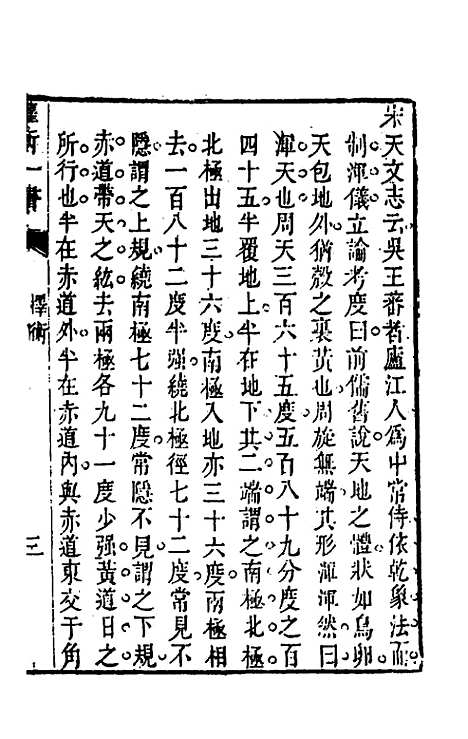 宋天文志云吳王蕃者廬江人爲中常侍依乾象法而
制渾儀立論考度曰前儒舊說天地之體狀如鳥卵
天包地外猶殼之裏黃也周旋無端其形渾渾然曰
渾天也周天三百六十五度五百八十九分度之百
四十五半覆地上半在地下其二端謂之南極北極
北極出地三十六度南極入地亦三十六度兩極相
去一百八十二度半强繞北極徑七十二度常見不
隱謂之上規繞南極七十二度常隱不見謂之下規
赤道帶天之紘去兩極各九十一度少强黃道日之
所行也半在赤道外半在赤道內與赤道東交于角
衡一書
擇術
三